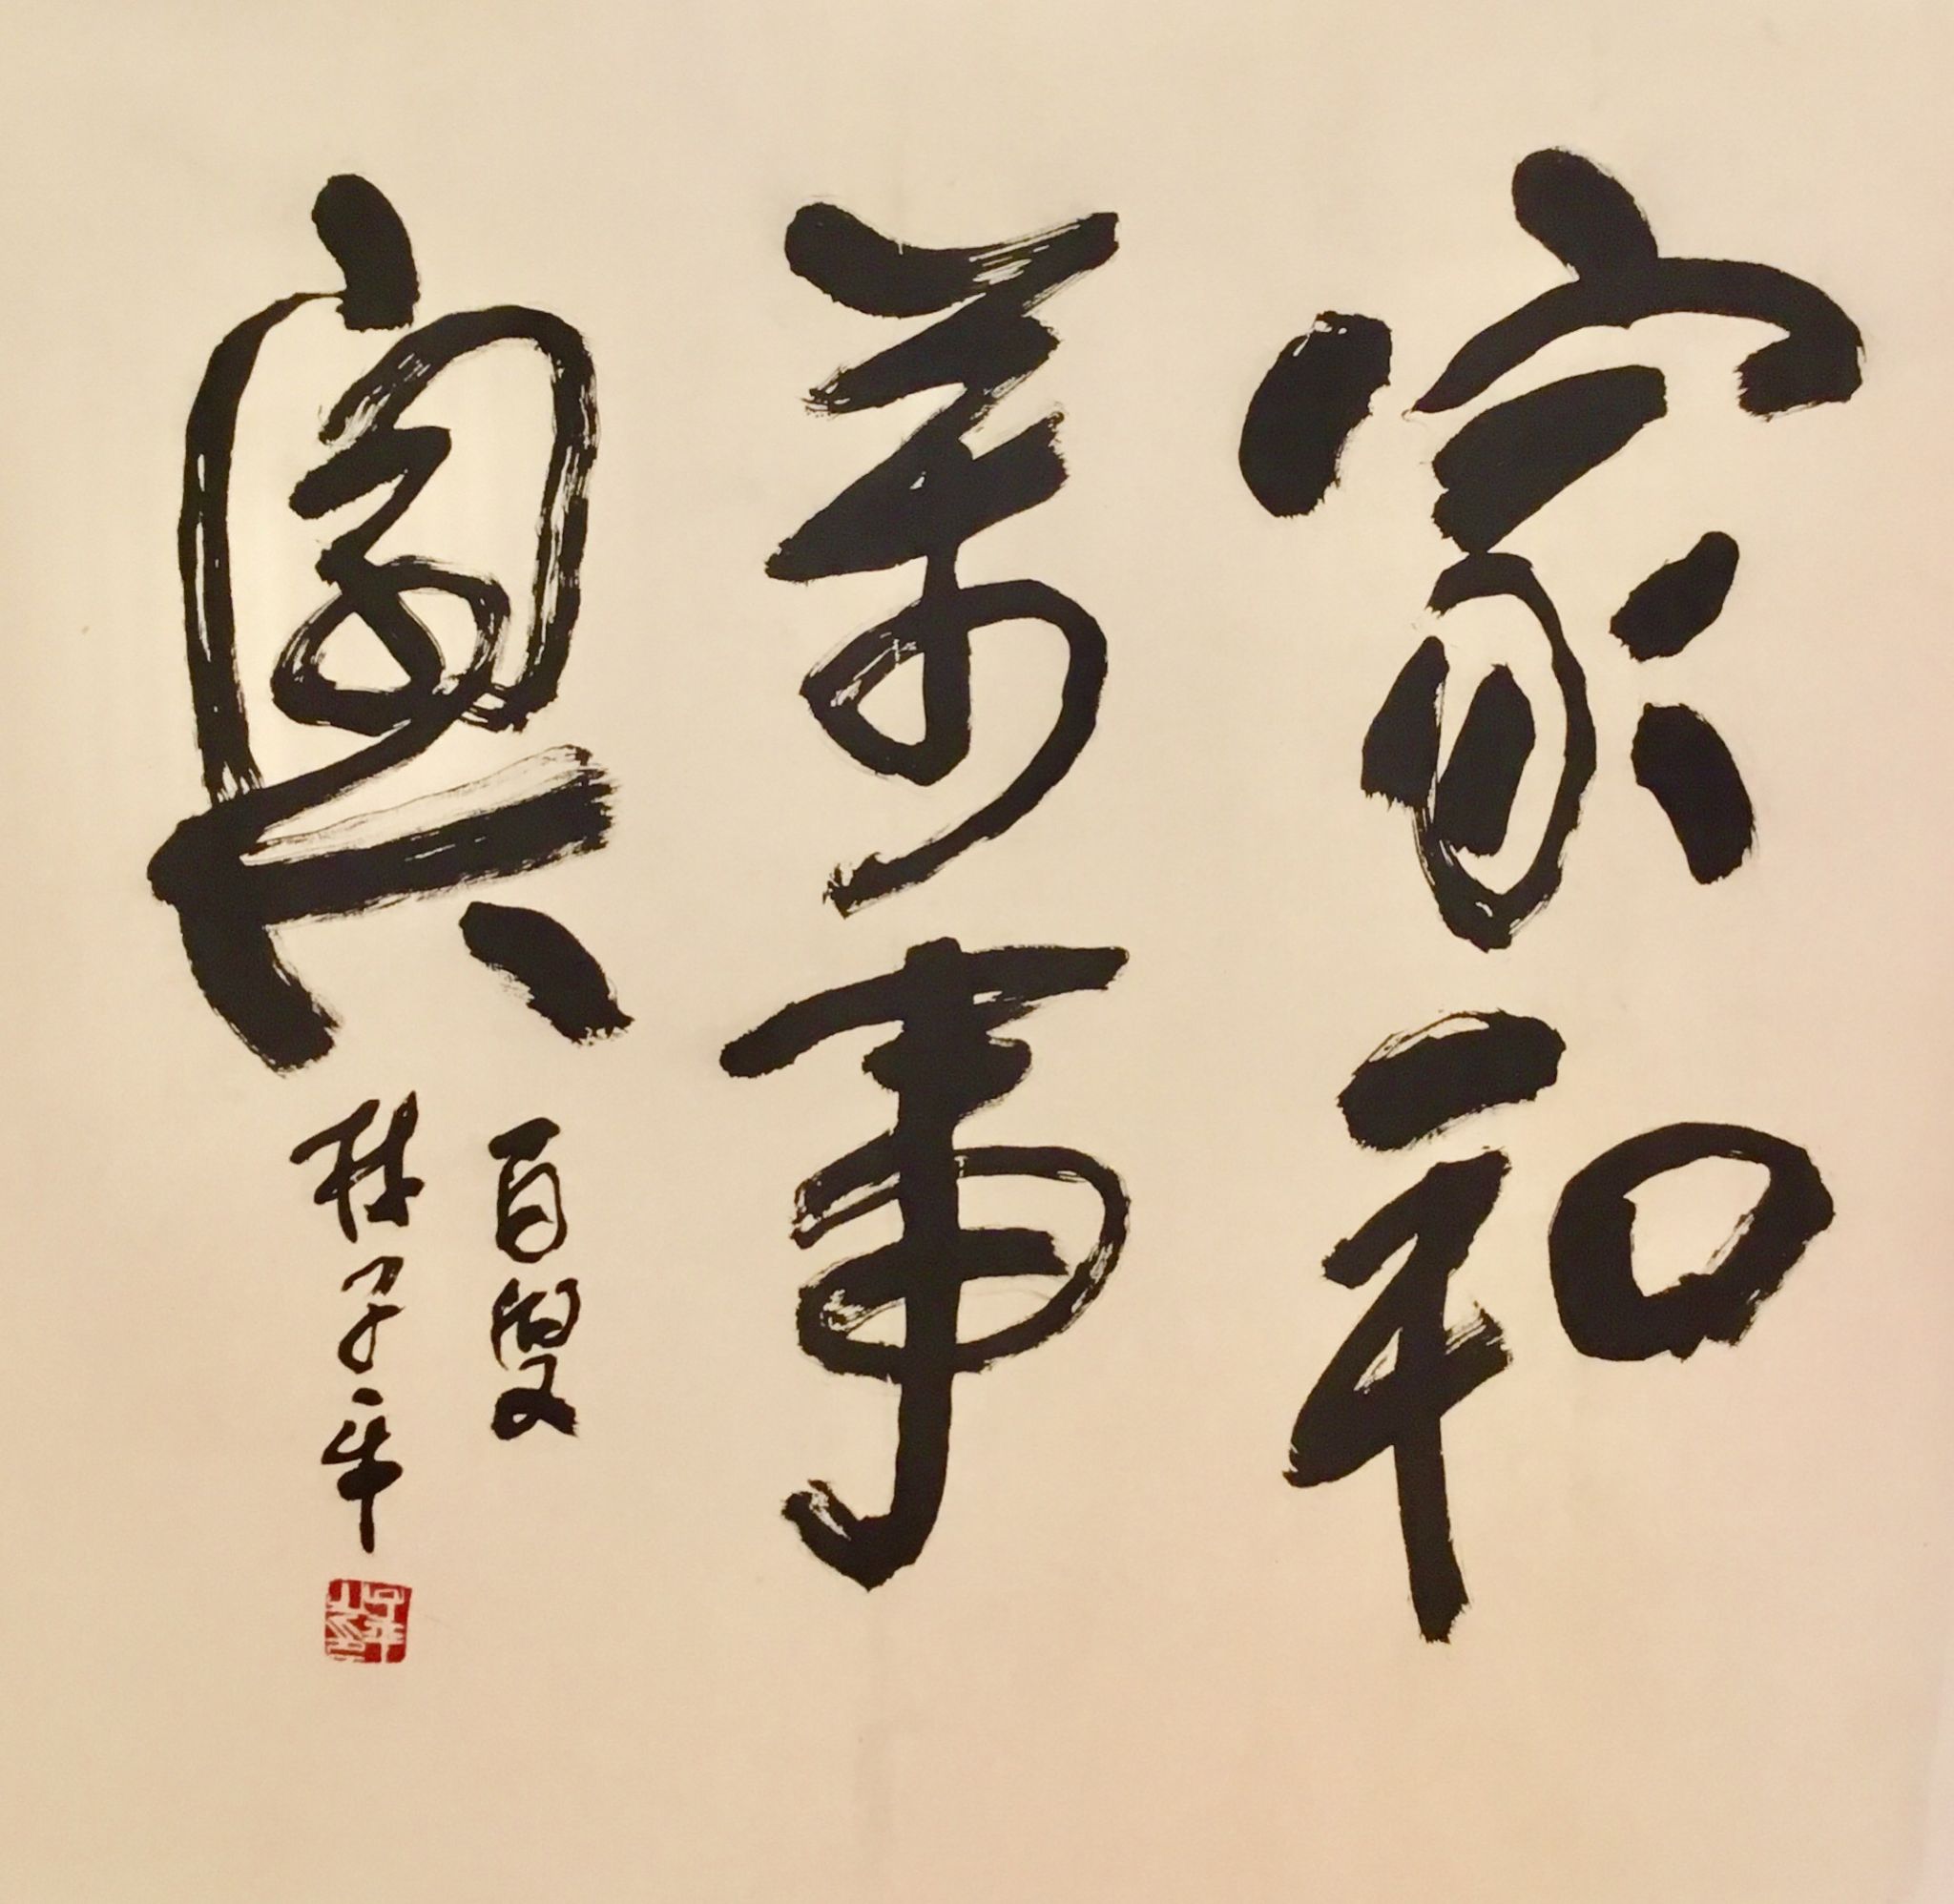 家和
萬事
興
百叟
林子平